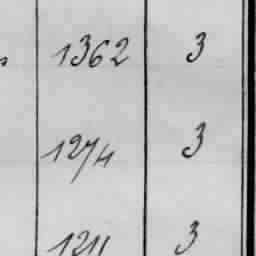 1362 3
1274 3
1211 3